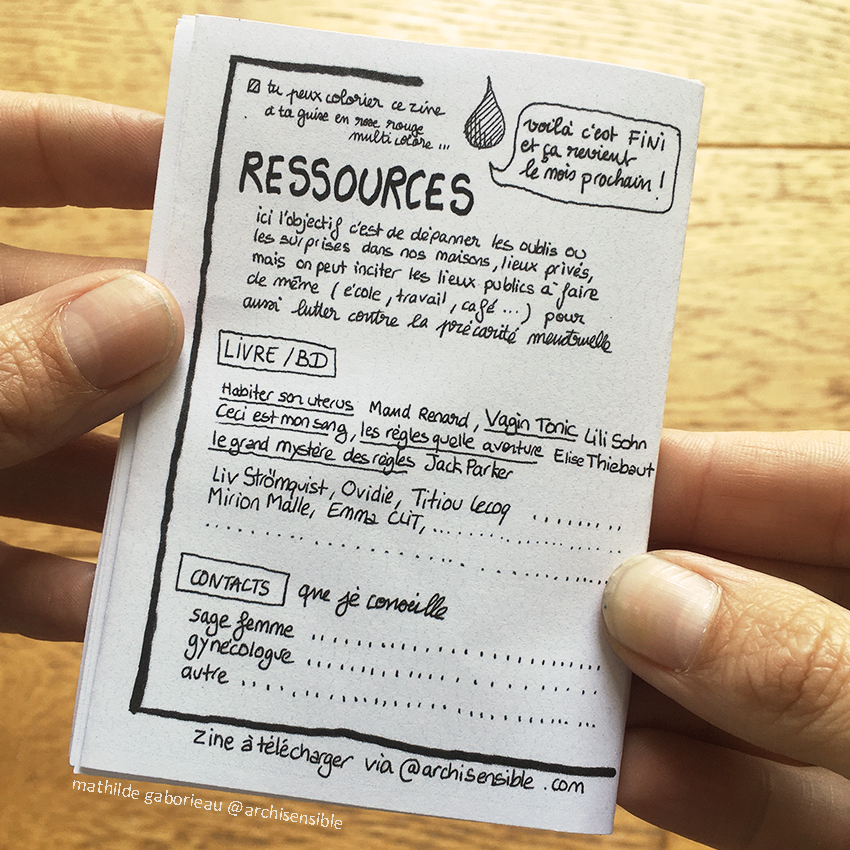 tu peux colorier ce zine
à ta guise en rose rouge
multicolore ...
voilà c'est FiNi
et ça revient
le mois prochain !
RESSOURCES
ici l'objectif c'est de dépanner les oublis ou
les surprises dans nos maisons, lieux privés,
mais on peut inciter les lieux publics à faire
de même (école, travail, café ...) pour
aussi lutter contre la précarité menstruelle
LIVRE / BD
Habiter son uterus Maud Renard, Vagin Tonic Lili Sohn
Ceci est mon sang, les règles quelle aventure Elise Thiebaut
le grand mystère des règles Jack Parker
Liv Strömquist, Ovidie, Titiou Lecoq ........
Mirion Malle, Emma CLIT, ...............
CONTACTS que je conseille
sage femme ....................
gynécologue ....................
autre ....................
zine à télécharger via @archisensible .com
mathilde gaborieau @archisensible